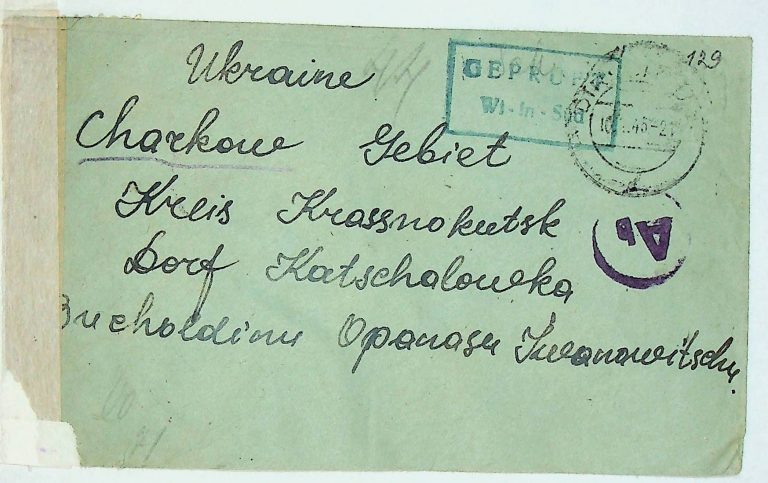 Ukraine
Charkow Gebiet
Kreis Krassnokutsk
Dorf Katschalowka
Bucholdinu Opanasu Iwanowitschu.
GEPRÜFT
Wi-In-Süd
129
Ab